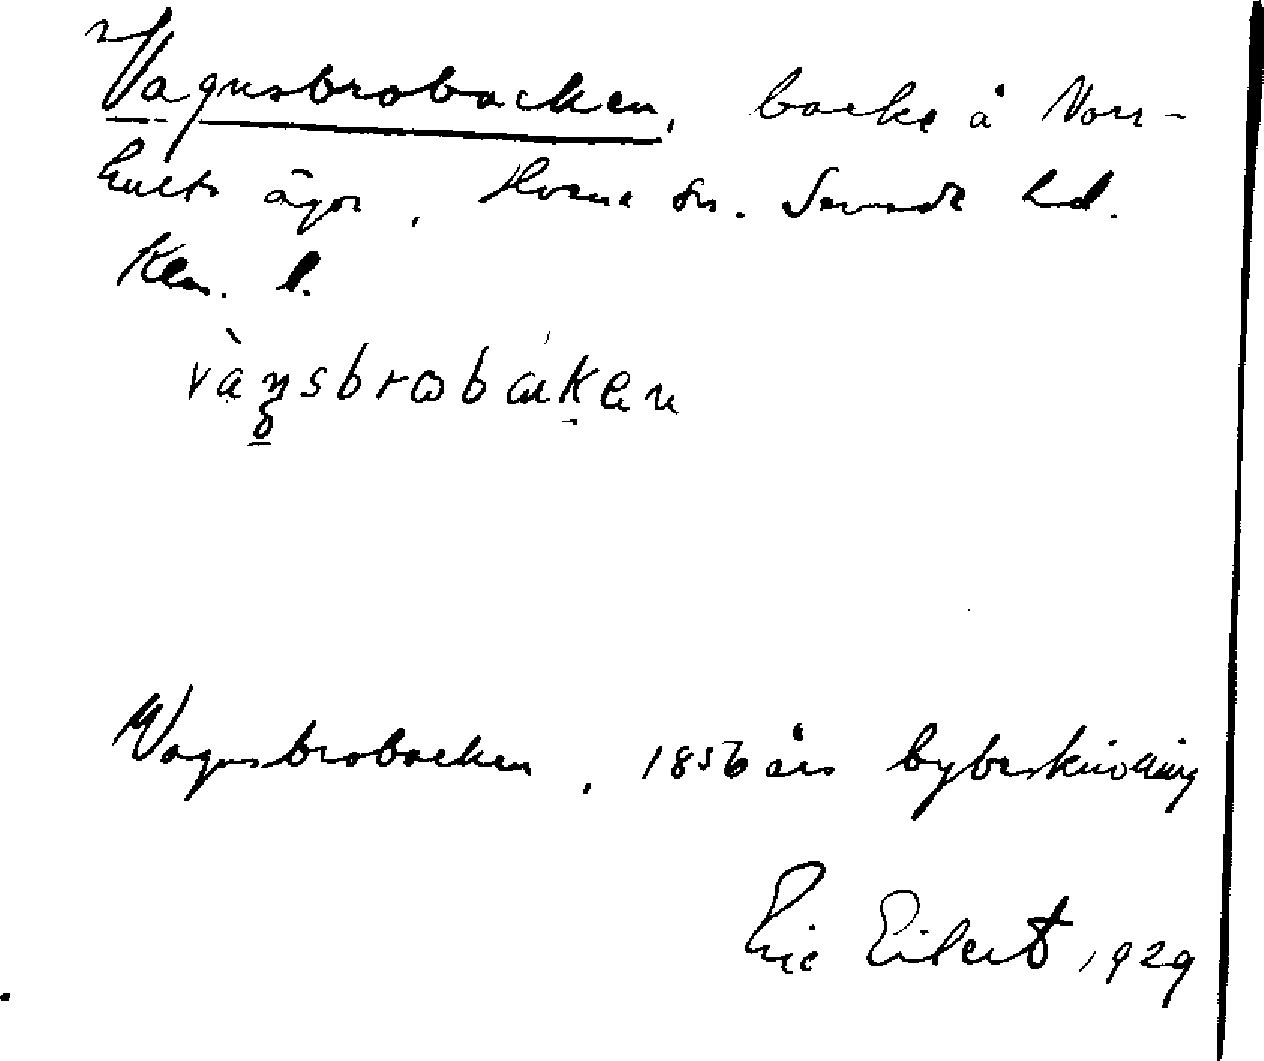 Vagnsbrobacken, backe å Norr-
hults ägor, Horns sn. hd.
Klm. l.
vàŋsbrωbaken
Vagnsbrobacken, 1856 års bybeskrivning
Eric Eilert, 1929